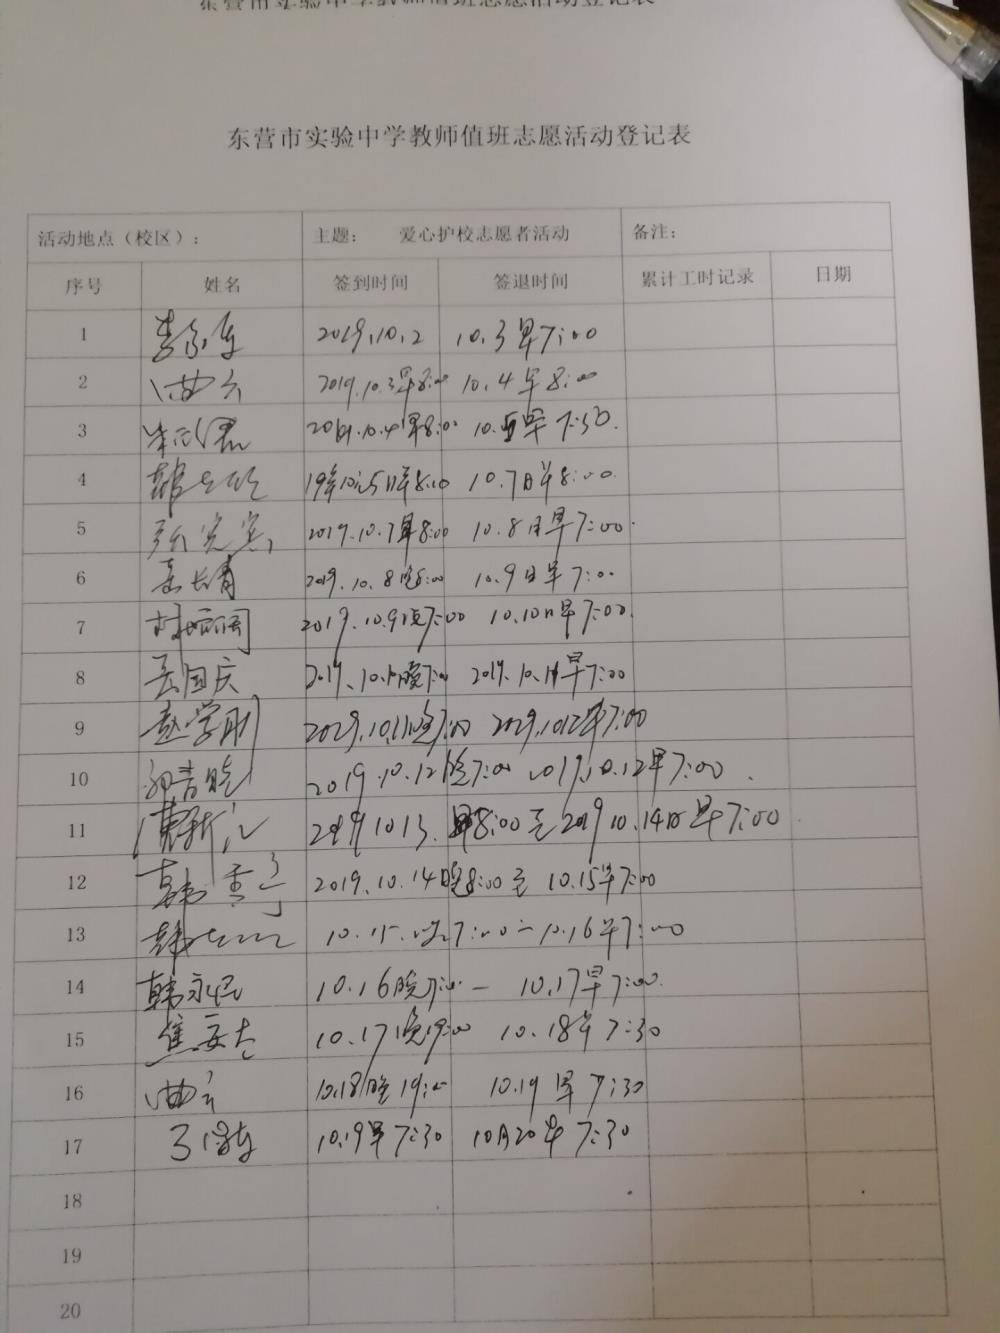 东营市实验中学教师值班志愿活动登记表
东营市实验中学教师值班志愿活动登记表
活动地点（校区）： 主题： 爱心护校志愿者活动 备注：
序号 姓名 签到时间 签退时间 累计工时记录 日期
1 2019.10.2 10.3早7:00
2 曲云 2019.10.3早8:00 10.4早8:00
3 2019.10.4早8:00 10.5早7:30.
4 19年10.5日早8:00 10.7日早8:00.
5 2019.10.7早8:00 10.8日早7:00.
6 岳长青 2019.10.8晚8:00 10.9日早7:00
7 2019.10.9晚7:00 10.10日早7:00.
8 岳国庆 2019.10.10晚7:00 2019.10.11早7:00
9 赵学刚 2029.10.11晚7:00 2029.10.12早7:00
10 2019.10.12晚7:00 2019.10.12早7:00.
11 2019 10 13. 早8:00至2019 10.14日早7:00
12 韩 2019.10.14晚8:00至 10.15早7:00
13 韩 10.15.晚7:00-10.16早7:00
14 韩永 10.16晚7:00- 10.17早7:00.
15 焦安 10.17晚19:00 10.18早7:30
16 曲云 10.18晚19:00 10.19早7:30
17 10.19早7:30 10月20早7:30
18
19
20